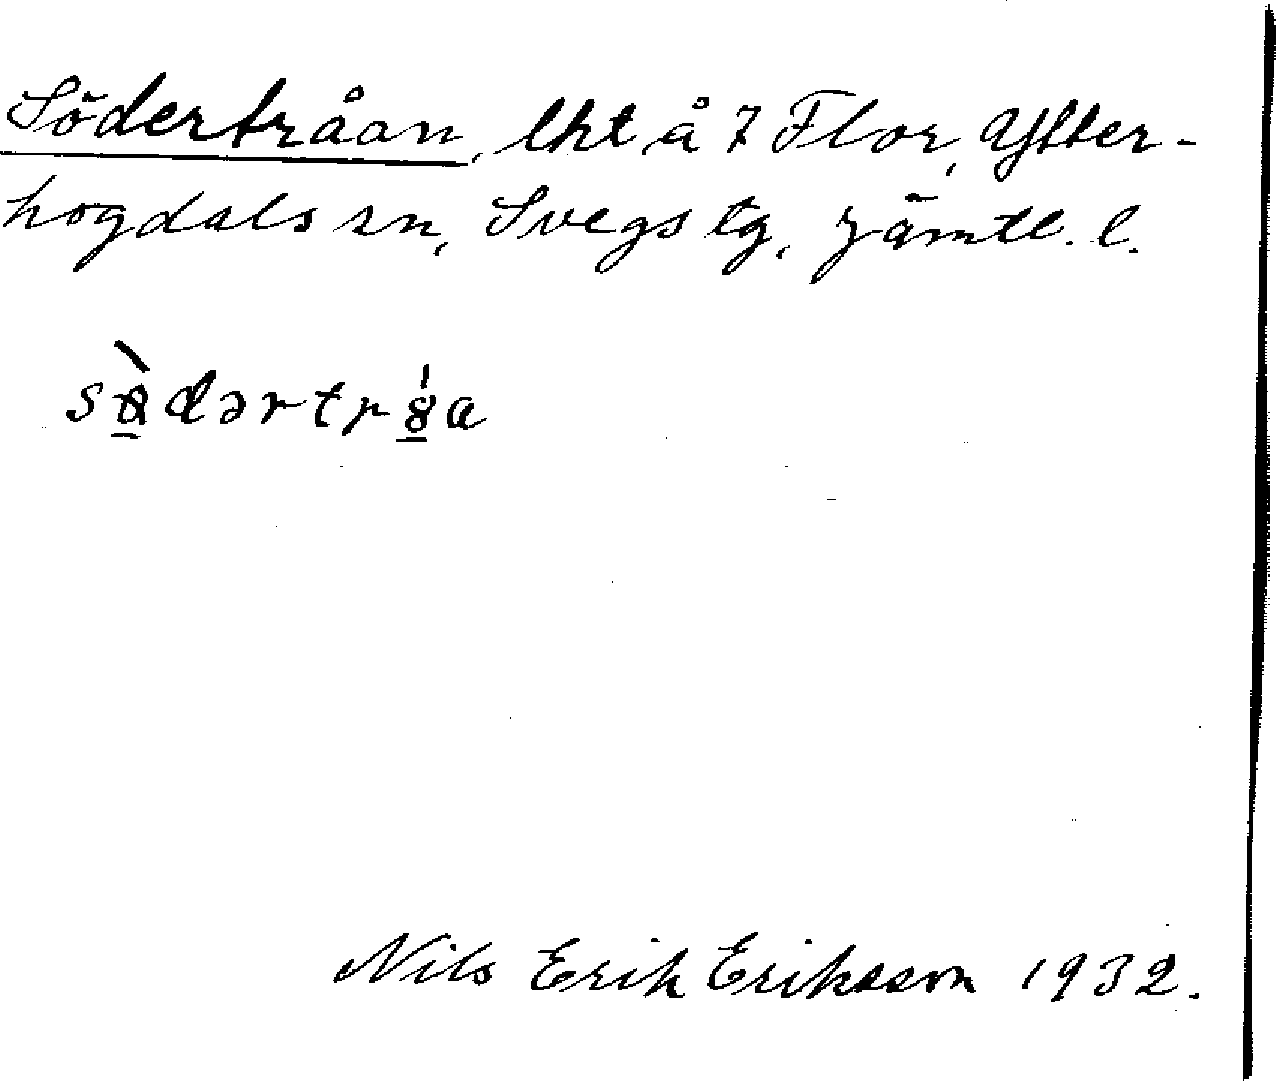 Södertråan, lht å 7 Flor, Ytter-
hogdals sn, Svegs tg, Jämtl. l.
Nils Erik Eriksson 1932.